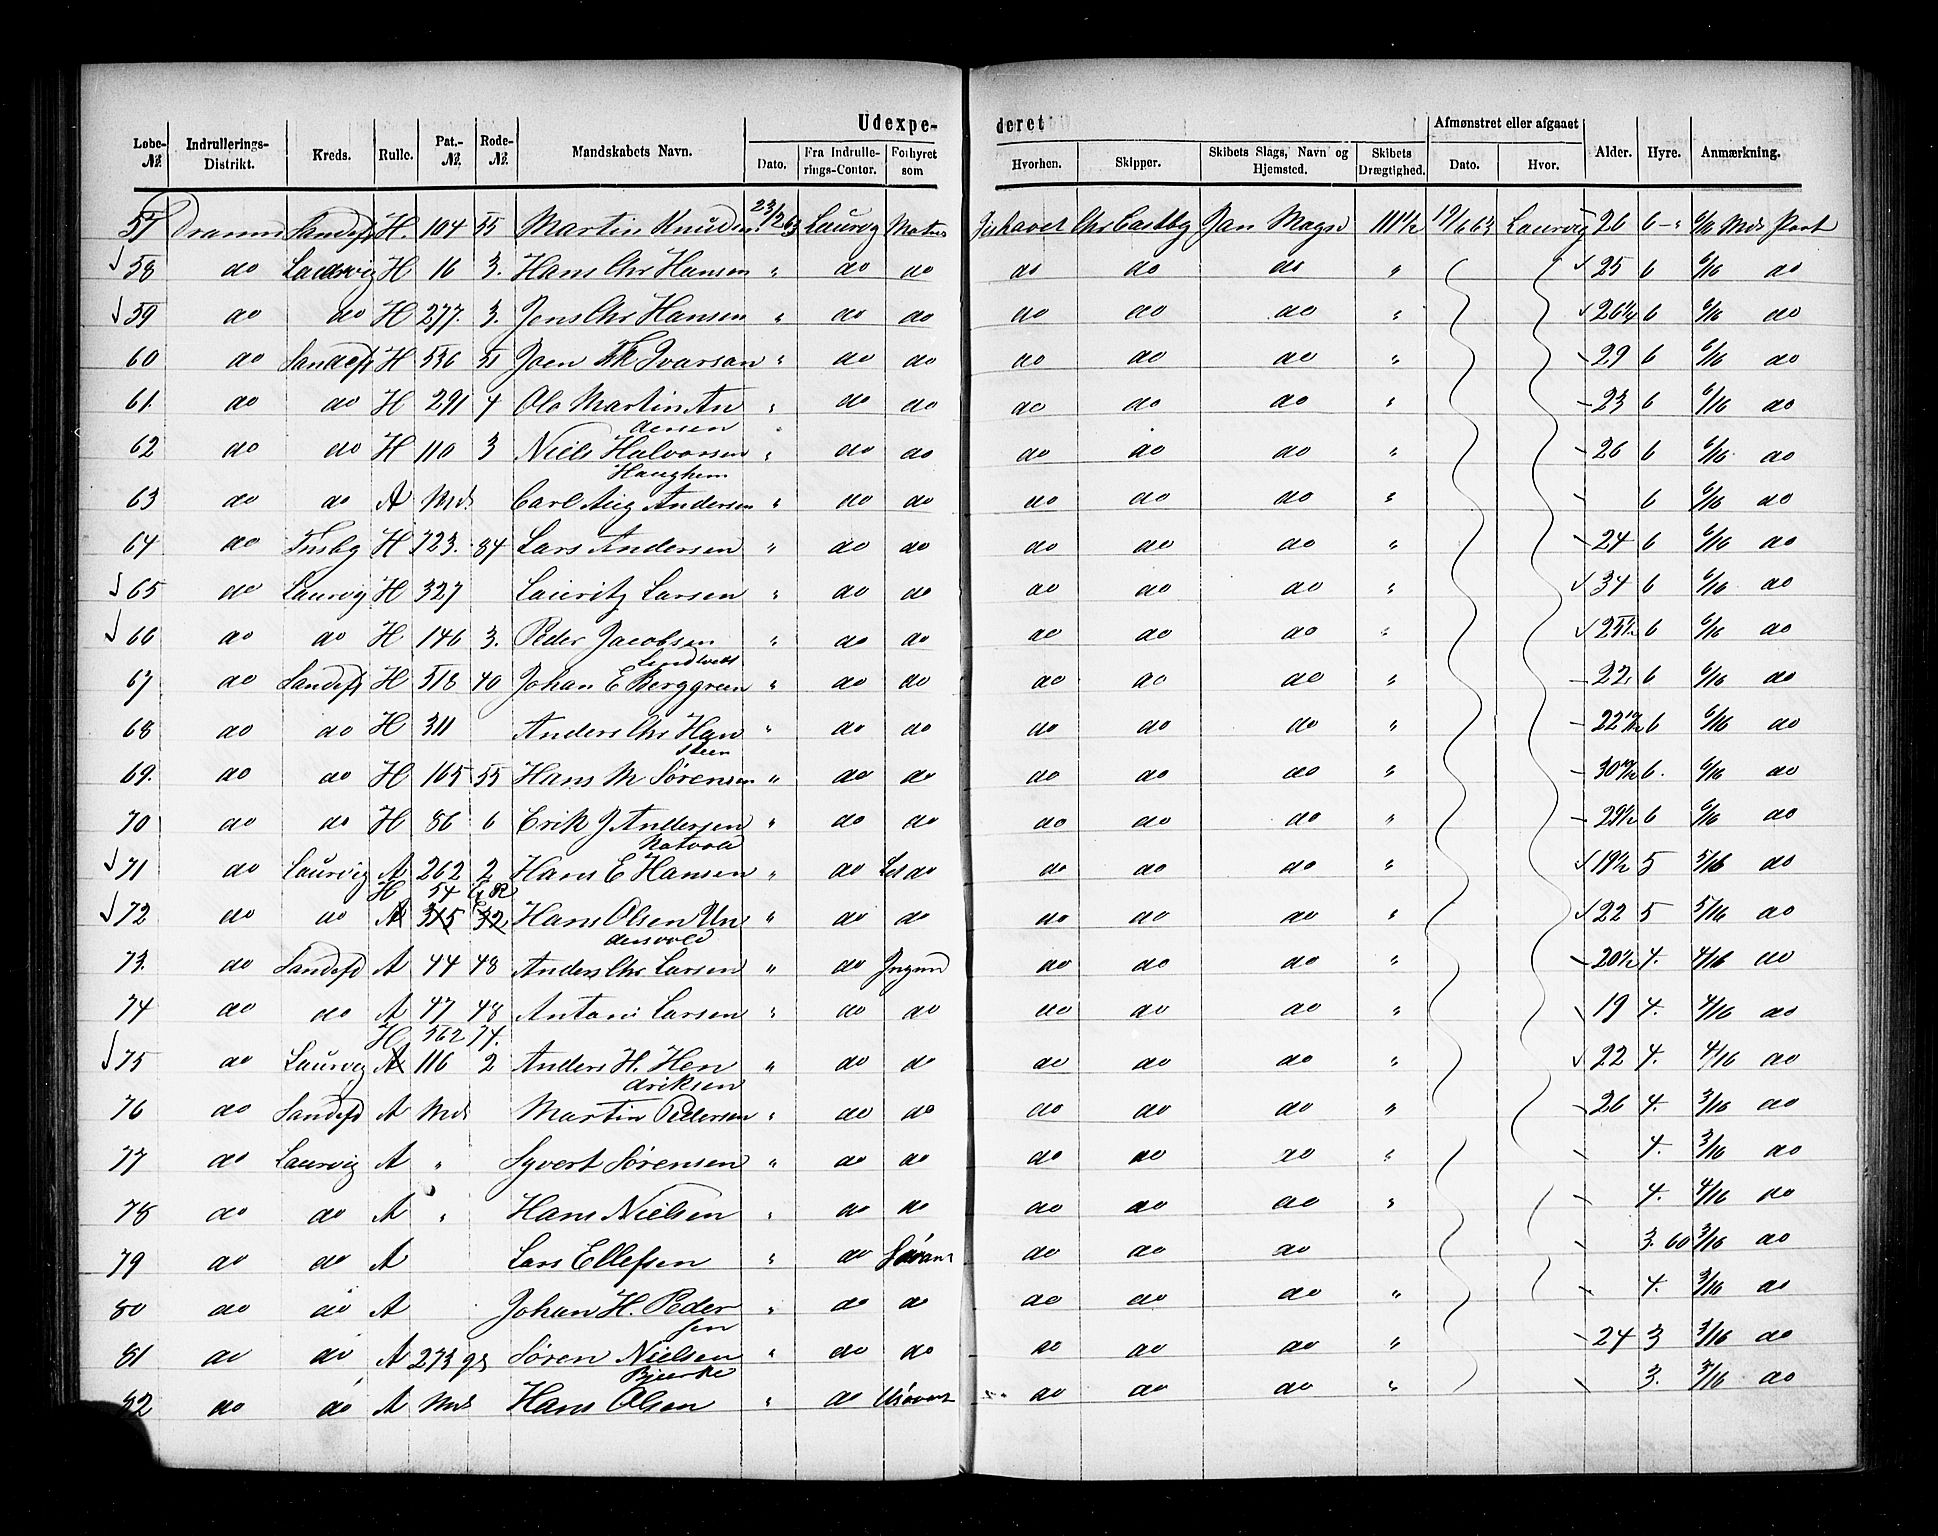 Udexpe- deret
Løbe- № Indrullerings- Distrikt. Kreds. Rulle. Pat.- № Rode- № Mandskabets Navn. Dato. Fra Indrulle- rings-Contor. Forhyret som Hvorhen. Skipper. Skibets Slags, Navn og Hjemsted. Skibets Drægtighed. Afmønstret eller afgaaet Dato. Hvor. Alder. Hyre. Anmærkning.
57 Dramm Sandefj H. 104 55 Martin Knudsen 23/2 63 Laurvig Matros Ishavet Chr Castby Jan Mayn 111 1/2 19/6 63 Laurvig 26 6 6/16 Mds Part
58 do Laurvig H 16 3. Hans Chr Hansen " do do do do do " 25 6 6/16 do
59 do do H 277. 3. Jens Chr Hansen " do do do do do " 26 1/4 6 6/16 do
60 do Sandefj H 536 51 Joen Fk Ivarsan " do do do do do " 29 6 6/16 do
61. do do H 291 4 Ole Martin An " do do do do do " 23 6 6/16 do
dersen
62 do do H 110 3 Niels Halvorsen " do do do do do " 26 6 6/16 do
Haughem
63 do do A Mds Carl Aug Andersen " do do do do do " 6 6/16 do
64 do Tnsbg H 723. 84 Lars Andersen " do do do do do " 24 6 6/16 do
65 do Laurvig H 327 Lauritz Larsen " do do do do do " 34 6 6/16 do
66 do do H 146 3. Peder Jacobsen " do do do do do " 25 1/2 6 6/16 do
67 do Sandefj H 518 40 Johan E Berggreen " do do do do do " 22 6 6/16 do
68 do do H 311 Anders Chr Han " do do do do do " 22 6 6/16 do
steen
69. do do H 165 55 Hans M Sørensen " do do do do do " 30 6. 6/16 do
70 do do H 86 6 Erik J Andersen " do do do do do " 29 1/2 6 6/16 do
Natvold
71 do Laurvig A 262 2 Hans E Hansen " do Let do do do do " 19 1/2 5 5/16 do
H 54
72 do do A 315 32 Hans Olsen Un " do do do do do " 22 5 5/16 do
dersvold
73. do Sandefd A 44 48 Anders Chr Larsen " do Jngmd do do do " 20 1/2 4. 4/16 do
74 do do A 47 48 Antoni Larsen " do do do do do " 19 4. 4/16 do
H 562 74.
75 do Laurvig A 116 2 Anders H. Hen " do do do do do " 22 4. 4/16 do
driksen
76 do Sandefd A Mds Martin Pedersen " do do do do do " 26 4. 3/16 do
77 do Laurvig A " Syvert Sørensen " do do do do do " 4. 3/16 do
78 do do A " Hans Nielsen " do do do do do " 4. 4/16 do
79 do do A Lars Ellefsen " do do do do 3. 60 3/16 do
80 do do A Johan H. Peder " do do do do do " 4. 3/16 do
sen
81 do do A 273 98 Søren Nielsen " do do do do do " 24 3 3/16 do
Bjerke
82 do do A Mds Hans Olsen " do do do do " 3. 3/16 do